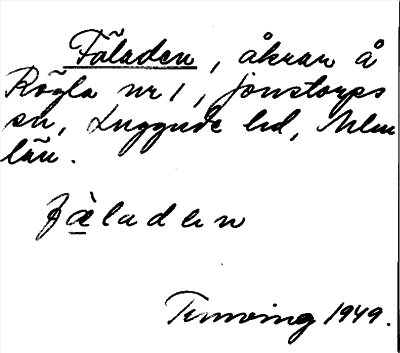 Fäladen, åkrar å
Rögla nr 1, Jonstorps
sn, Luggude hd, Mlm
län.
fàladen
1949.